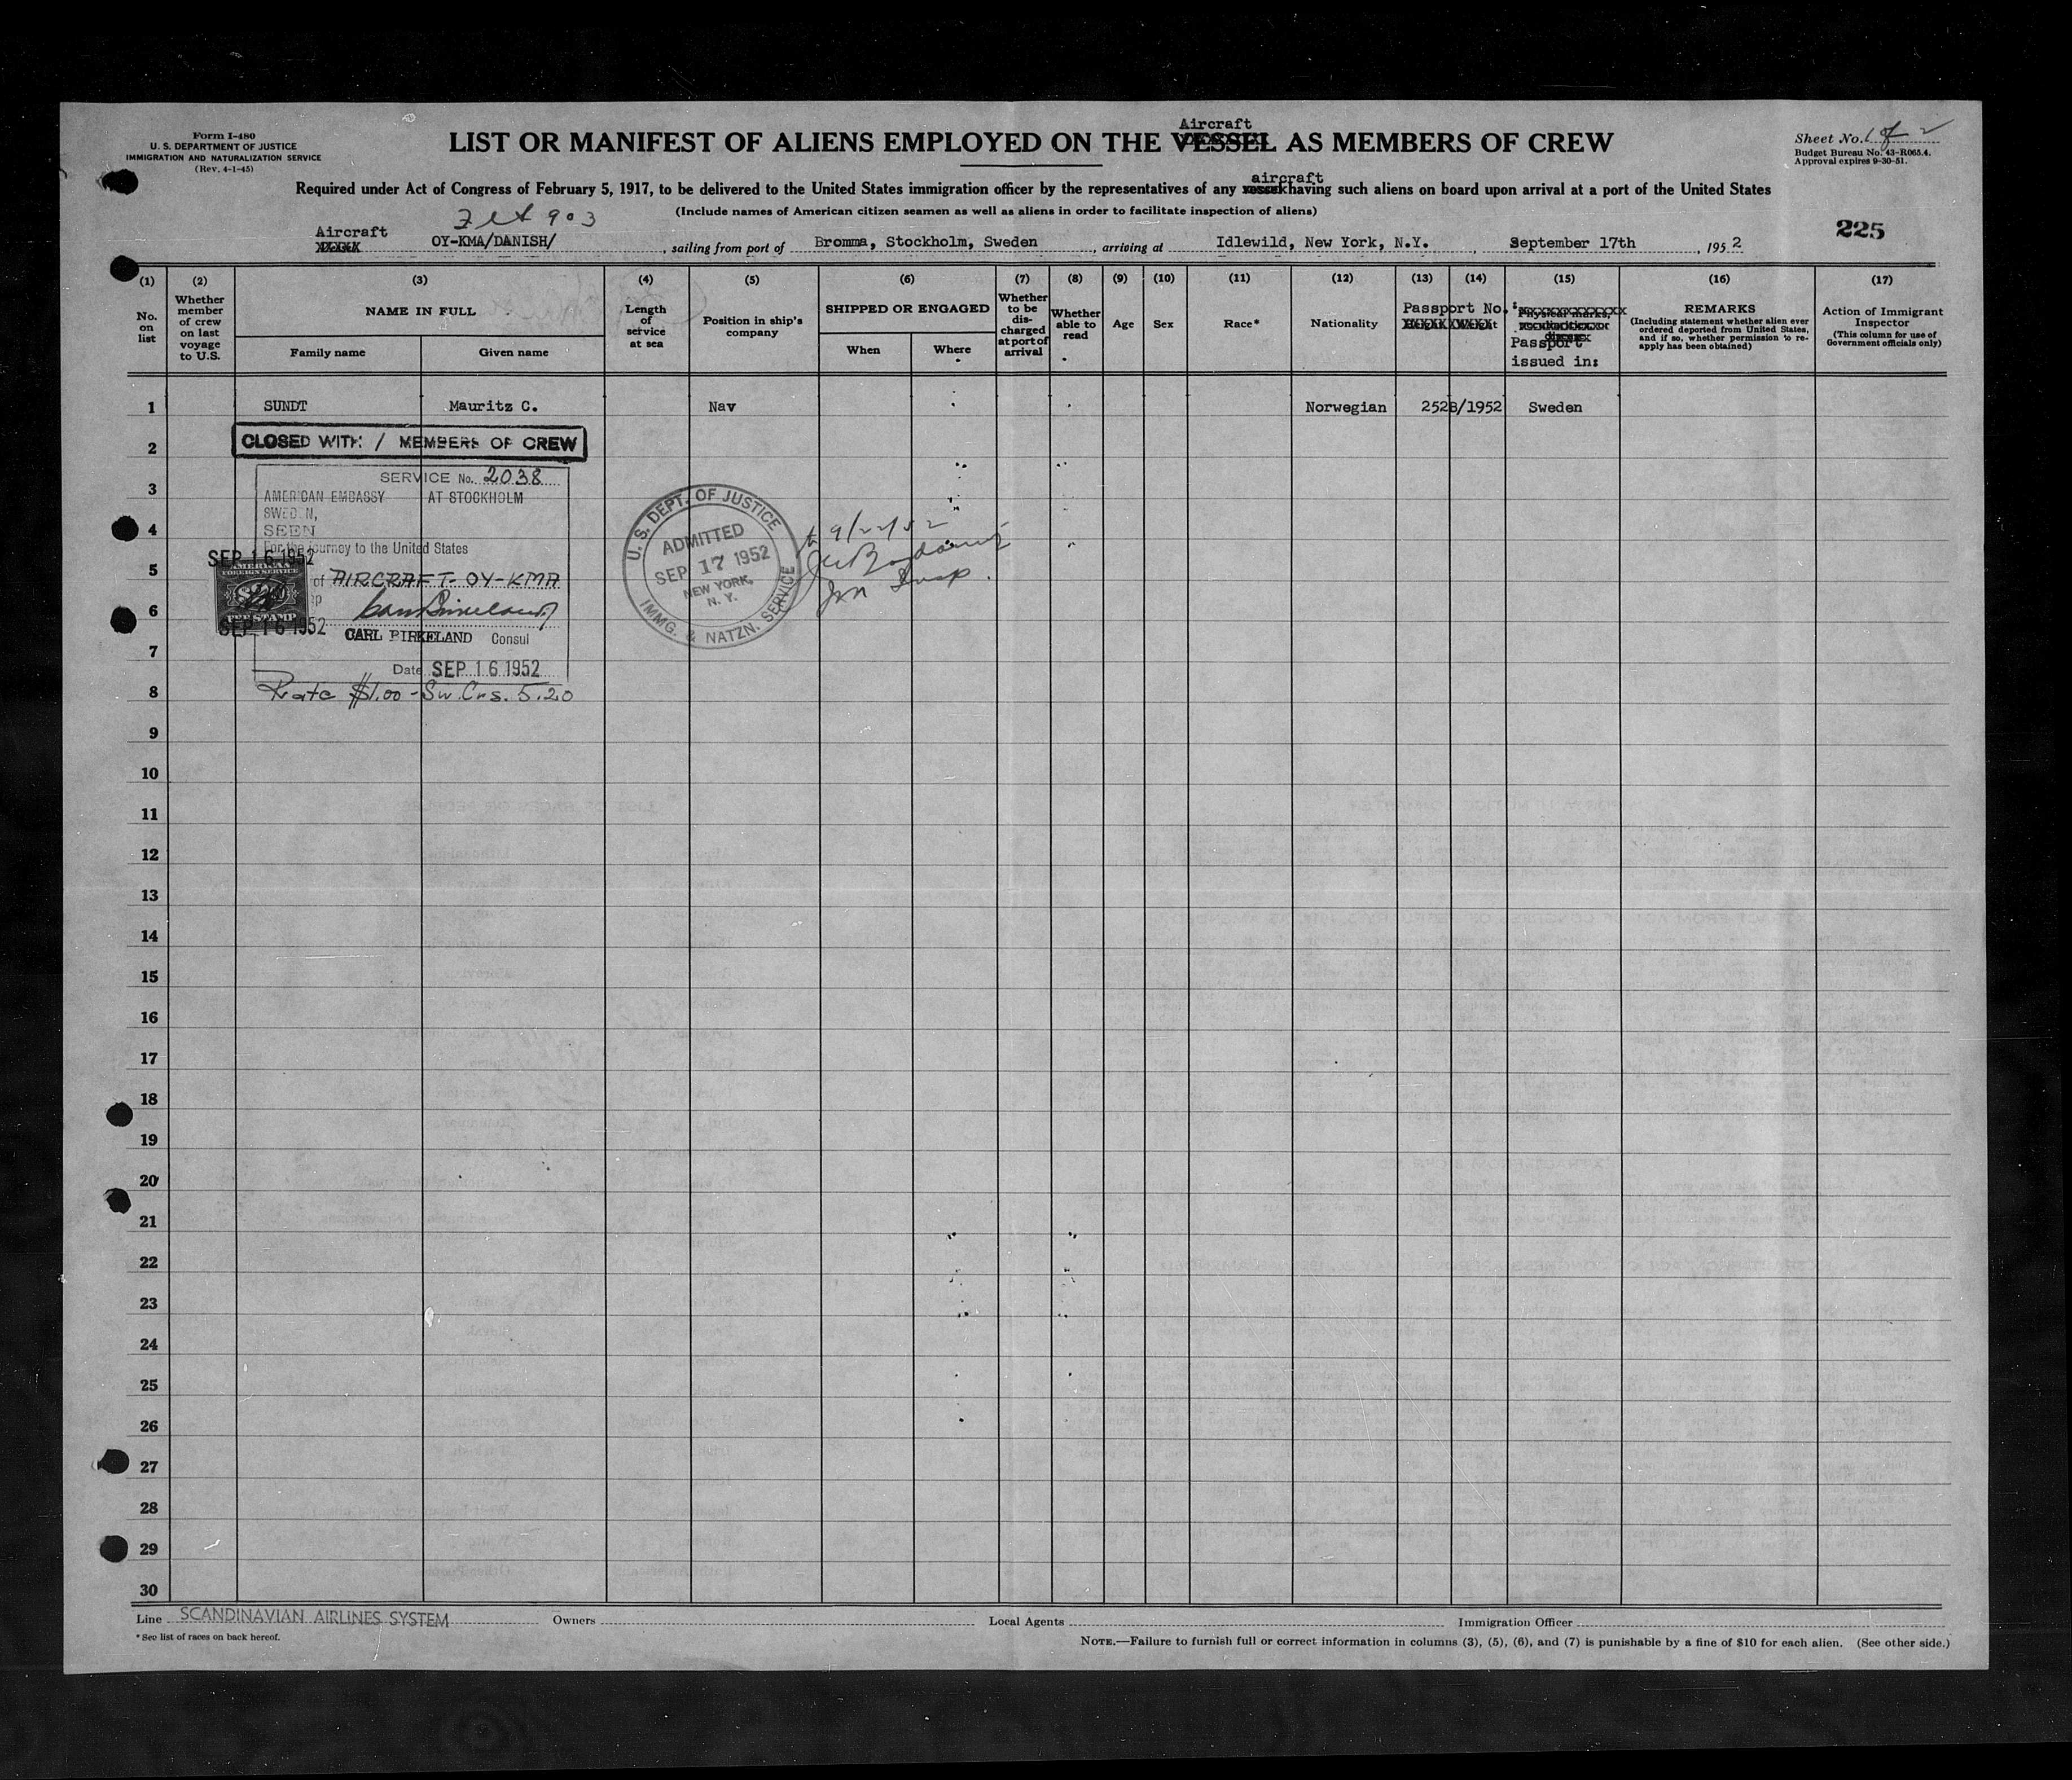 Form I-480
U. S. DEPARTMENT OF JUSTICE
IMMIGRATION AND NATURALIZATION SERVICE
(Rev. 4-1-45)
Aircraft
LIST OR MANIFEST OF ALIENS EMPLOYED ON THE VESSEL AS MEMBERS OF CREW
Sheet No. 1 of 2
Budget Bureau No. 43-R065.4.
Approval expires 9-30-51.
aircraft
Required under Act of Congress of February 5, 1917, to be delivered to the United States immigration officer by the representatives of any vessel having such aliens on board upon arrival at a port of the United States
(Include names of American citizen seamen as well as aliens in order to facilitate inspection of aliens)
903
225
Aircraft OY-KMA/DANISH/, sailing from port of Bromma, Stockholm, Sweden, arriving at Idlewild, New York, N.Y., September 17th, 1952
(1) (2) (3) (4) (5) (6) (7) (8) (9) (10) (11) (12) (13) (14) (15) (16) (17)
No. on list
Whether member of crew on last voyage to U.S.
NAME IN FULL
Family name
Given name
Length of service at sea
Position in ship's company
SHIPPED OR ENGAGED
When
Where
Whether to be discharged at port of arrival
Whether able to read
Age
Sex
Race*
Nationality
Passport No.:
Physical marks,
Passport
issued in:
REMARKS
(Including statement whether alien ever ordered deported from United States, and if so, whether permission to re-apply has been obtained)
Action of Immigrant Inspector
(This column for use of Government officials only)
1 SUNDT Mauritz C. Nav Norwegian 2528/1952 Sweden
CLOSED WITH / MEMBERS OF CREW
2
SERVICE No. 2038
3
AMERICAN EMBASSY AT STOCKHOLM
SWEDEN,
4
SEEN
For the journey to the United States
SEP 16 1952
5
AMERICAN
FOREIGN SERVICE
of AIRCRAFT-OY-KMA
6
FEE STAMP
SEP 16 1952
CARL BIRKELAND Consul
7
Date SEP 16 1952
8
Rate $1.00 - Sw. Crs. 5.20
U. S. DEPT. OF JUSTICE
ADMITTED
SEP 17 1952
NEW YORK,
N. Y.
IMMG. & NATZN. SERVICE
9/22/52
9
10
11
12
13
14
15
16
17
18
19
20
21
22
23
24
25
26
27
28
29
30
Line SCANDINAVIAN AIRLINES SYSTEM Owners Local Agents Immigration Officer
* See list of races on back hereof.
NOTE.—Failure to furnish full or correct information in columns (3), (5), (6), and (7) is punishable by a fine of $10 for each alien. (See other side.)